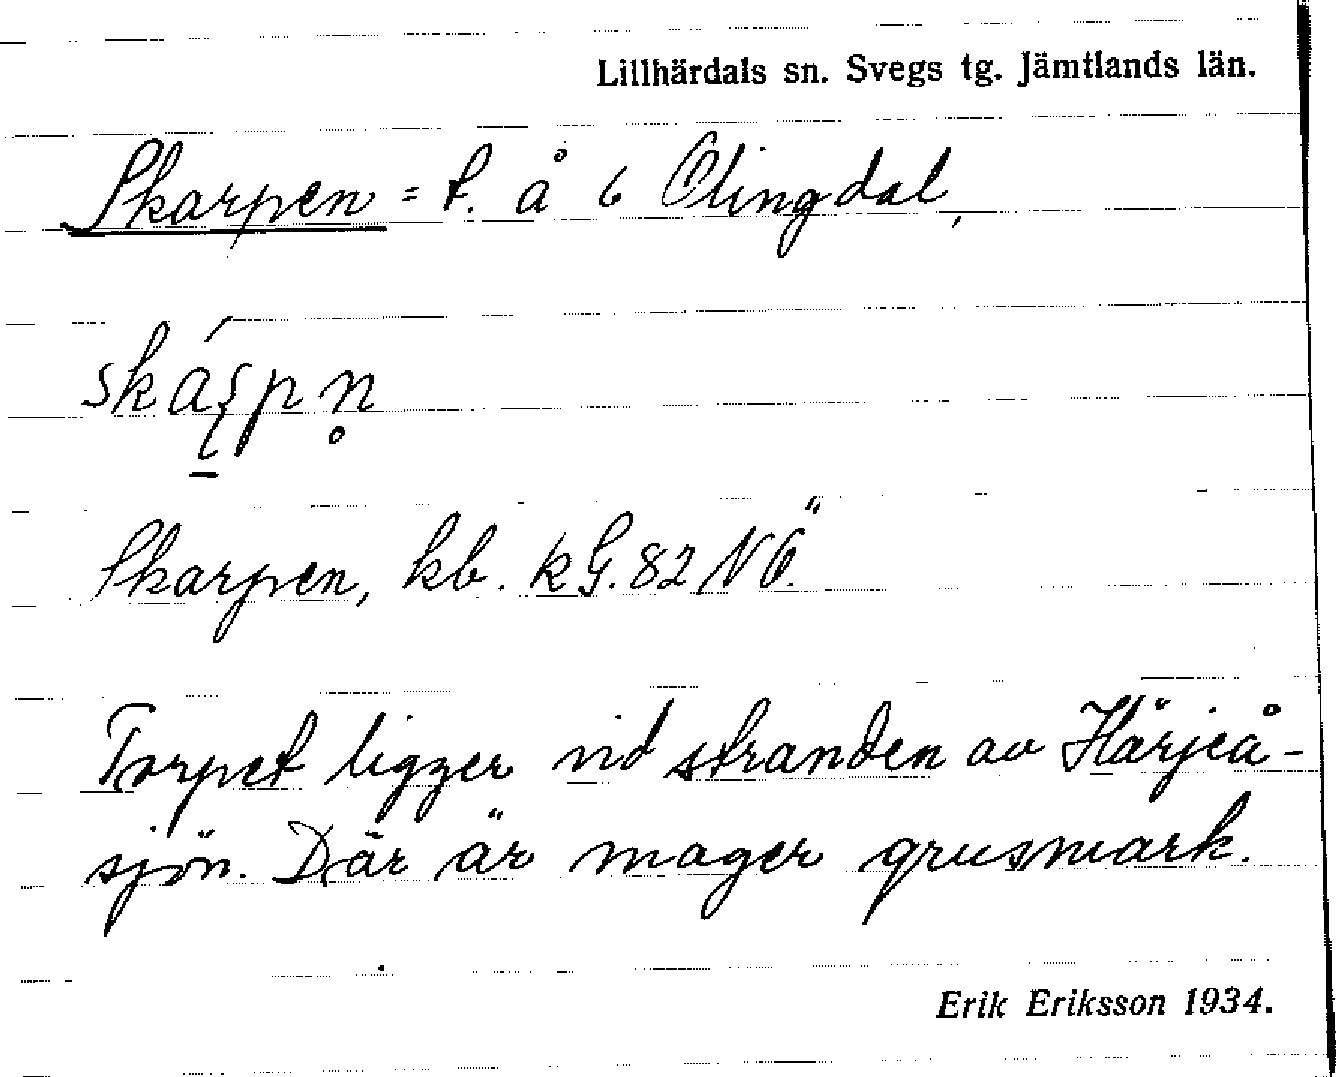 Lillhärdals sn. Svegs tg. Jämtlands län.
Skarpen = t. å 6 Olingdal,
Skarpen, kb. kG. 82 NÖ.
Torpet ligger vid stranden av Härjeå-
sjön. Där är mager grusmark.
Erik Eriksson 1934.